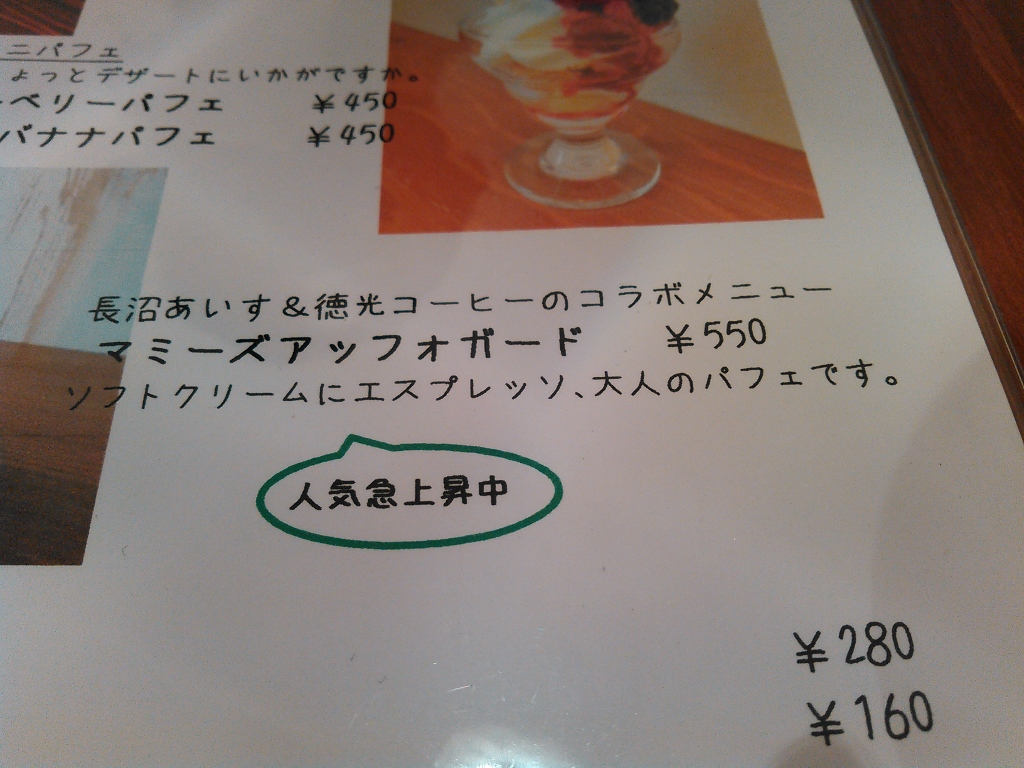 ニパフェ
ょっとデザートにいかがですか。
ーベリーパフェ ￥450
バナナパフェ ￥450
長沼あいす＆徳光コーヒーのコラボメニュー
マミーズアッフォガード ￥550
ソフトクリームにエスプレッソ、大人のパフェです。
人気急上昇中
￥280
￥160